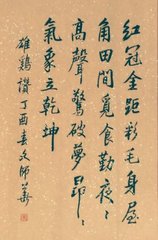 紅冠金距彩毛身屋
角田間覓食勤夜〻
高聲驚破夢昂〻
氣象立乾坤
雄鷄讚丁酉春文師